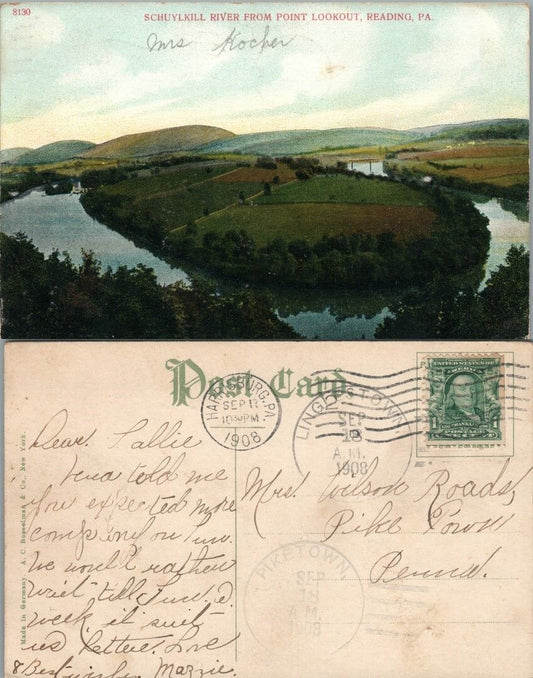 8130
SCHUYLKILL RIVER FROM POINT LOOKOUT, READING, PA.
Mrs Kocher
Post Card
HARRISBURG, PA.
SEP 17
10 30 PM
1908
LINGLESTOWN
SEP
18
A.M.
1908
UNITED STATES OF AMERICA
1
Dear Sallie
told me
you expected more
company on
we would rather
wait till Sund.
week it suit
us better. Love
8 Best wishes Mazzie.
Mrs. Wilson Roads,
Pike Town
Penna.
PIKETOWN,
SEP
18
A.M.
1908
Made in Germany A. C. Bosselman & Co., New York.